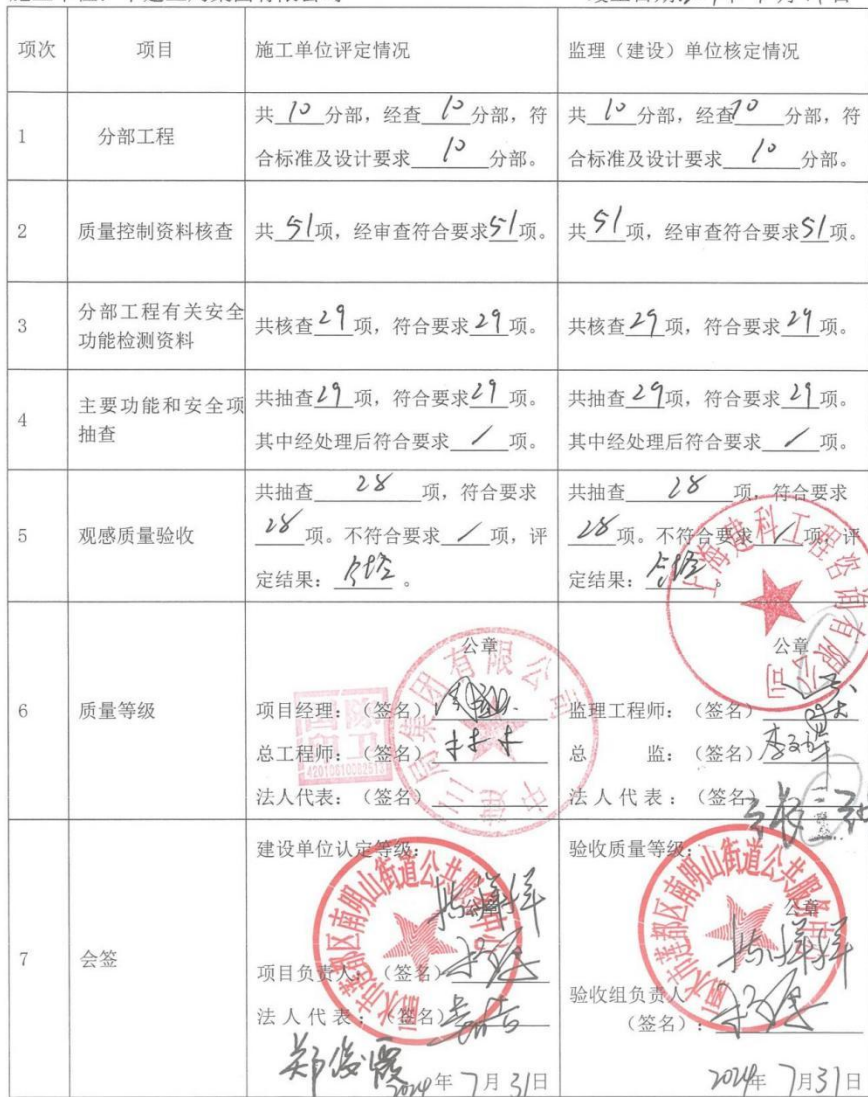 项次 项目 施工单位评定情况 监理（建设）单位核定情况
1 分部工程
共 10 分部，经查 10 分部，符
合标准及设计要求 10 分部。
共 10 分部，经查 10 分部，符
合标准及设计要求 10 分部。
2 质量控制资料核查 共 51 项，经审查符合要求 51 项。 共 51 项，经审查符合要求 51 项。
3 分部工程有关安全
功能检测资料
共核查 29 项，符合要求 29 项。 共核查 29 项，符合要求 29 项。
4 主要功能和安全项
抽查
共抽查 29 项，符合要求 29 项。
其中经处理后符合要求 / 项。
共抽查 29 项，符合要求 29 项。
其中经处理后符合要求 / 项。
5 观感质量验收
共抽查 28 项，符合要求
28 项。不符合要求 / 项，评
定结果： 合格 。
共抽查 28 项，符合要求
28 项。不符合要求 / 项，评
定结果： 合格 。
上海建科工程咨询有限公司
6 质量等级
公章
项目经理：（签名）
总工程师：（签名）
法人代表：（签名）
中建三局集团有限公司
公章
监理工程师：（签名）
总 监：（签名）
法人代表：（签名）
7 会签
建设单位认定等级：
公章
项目负责人：（签名）
法人代表：（签名）
郑俊霞
2024年 7月 31日
丽水市莲都区南明山街道公共服务中心
验收质量等级：
公章
验收组负责人
（签名）：
2024年 7月31日
丽水市莲都区南明山街道公共服务中心